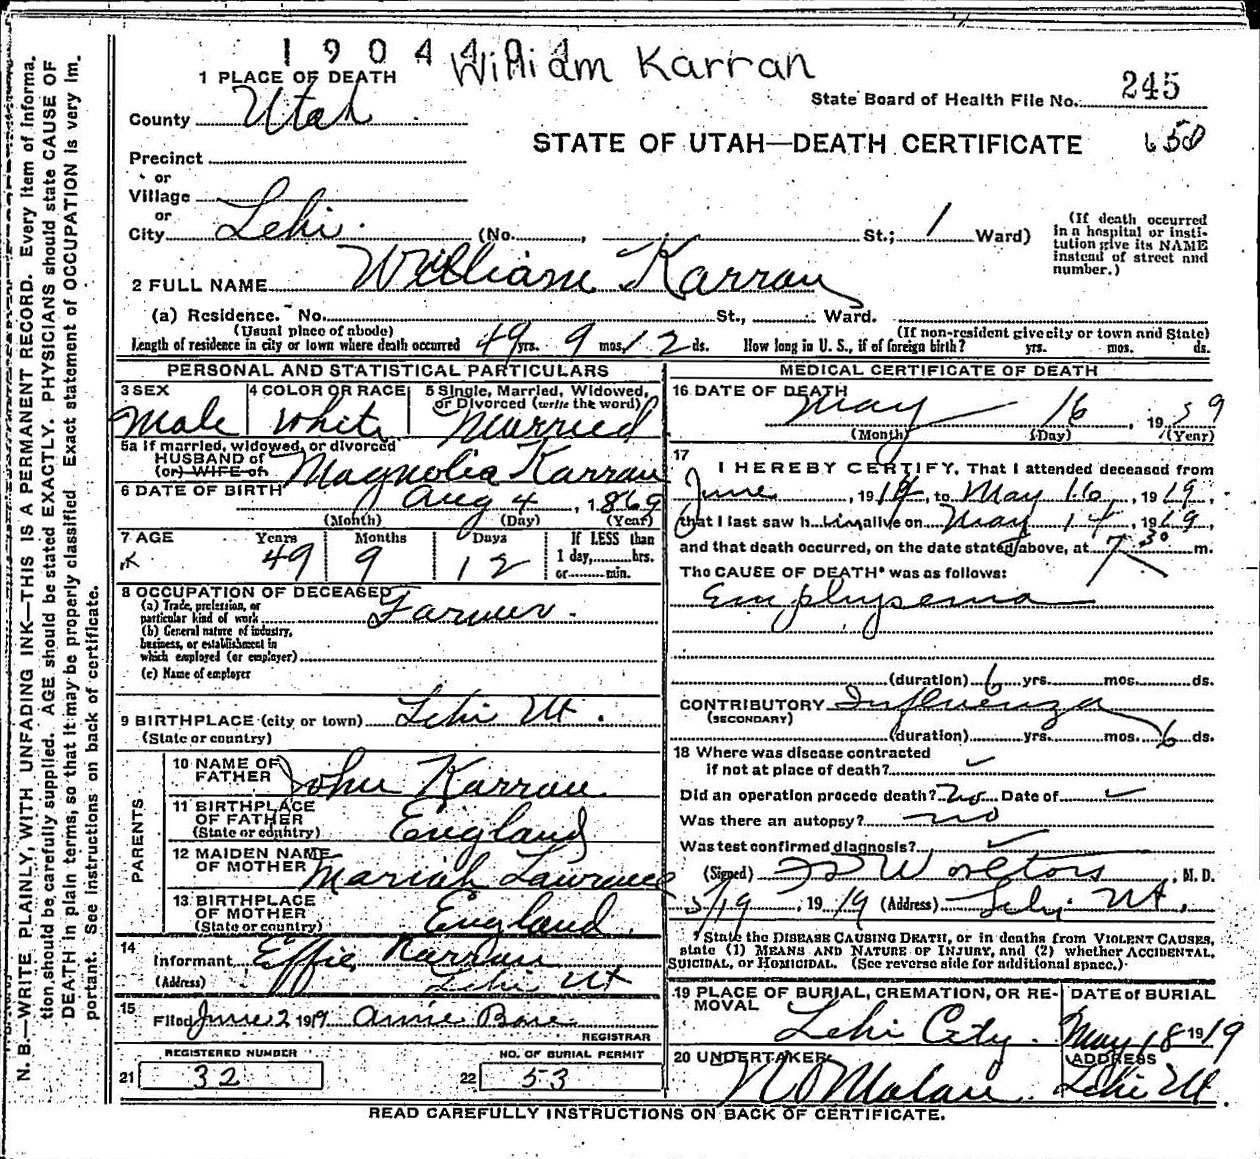 1904
William Karran
1 PLACE OF DEATH
State Board of Health File No. 245
County Utah
STATE OF UTAH—DEATH CERTIFICATE 650
Precinct
or
Village
or
City Lehi. (No. , St.; 1 Ward) (If death occurred in a hospital or institution give its NAME instead of street and number.)
2 FULL NAME William Karran
(a) Residence. No. St., Ward.
(Usual place of abode) (If non-resident give city or town and State)
Length of residence in city or town where death occurred 49 yrs. 9 mos. 12 ds. How long in U. S., if of foreign birth? yrs. mos. ds.
PERSONAL AND STATISTICAL PARTICULARS
3 SEX Male
4 COLOR OR RACE White
5 Single, Married, Widowed, or Divorced (write the word) Married
5a If married, widowed, or divorced
HUSBAND of
(or) WIFE of Magnolia Karran
6 DATE OF BIRTH Aug 4, 1869
(Month) (Day) (Year)
7 AGE Years 49 Months 9 Days 12 If LESS than 1 day, hrs. or min.
8 OCCUPATION OF DECEASED
(a) Trade, profession, or particular kind of work Farmer.
(b) General nature of industry, business, or establishment in which employed (or employer)
(c) Name of employer
9 BIRTHPLACE (city or town) Lehi Ut.
(State or country)
PARENTS
10 NAME OF FATHER John Karran
11 BIRTHPLACE OF FATHER England
(State or country)
12 MAIDEN NAME OF MOTHER Mariah Lawrence
13 BIRTHPLACE OF MOTHER England.
(State or country)
14 Informant Effie Karran
(Address) Lehi Ut
15 Filed June 2 1919
REGISTRAR
REGISTERED NUMBER
21 32
NO. OF BURIAL PERMIT
22 53
MEDICAL CERTIFICATE OF DEATH
16 DATE OF DEATH May 16, 19
(Month) (Day) (Year)
17 I HEREBY CERTIFY, That I attended deceased from
June, 19 , to May 16, 1919,
that I last saw him alive on May 14, 1919,
and that death occurred, on the date stated above, at 7 30 m.
The CAUSE OF DEATH* was as follows:
Emphysema
(duration) 6 yrs. mos. ds.
CONTRIBUTORY Influenza
(SECONDARY)
(duration) yrs. mos. 6 ds.
18 Where was disease contracted
if not at place of death? ✓
Did an operation precede death? No Date of ✓
Was there an autopsy? no
Was test confirmed diagnosis? ✓
(Signed) , M. D.
5/19, 1919 (Address) Lehi Ut.
*State the DISEASE CAUSING DEATH, or in deaths from VIOLENT CAUSES,
state (1) MEANS AND NATURE OF INJURY, and (2) whether ACCIDENTAL,
SUICIDAL, or HOMICIDAL. (See reverse side for additional space.)
19 PLACE OF BURIAL, CREMATION, OR REMOVAL Lehi City.
DATE of BURIAL May 18 1919
20 UNDERTAKER
ADDRESS Lehi Ut.
READ CAREFULLY INSTRUCTIONS ON BACK OF CERTIFICATE.
N. B.—WRITE PLAINLY, WITH UNFADING INK—THIS IS A PERMANENT RECORD. Every item of informa-
tion should be carefully supplied. AGE should be stated EXACTLY. PHYSICIANS should state CAUSE OF
DEATH in plain terms, so that it may be properly classified. Exact statement of OCCUPATION is very im-
portant. See instructions on back of certificate.